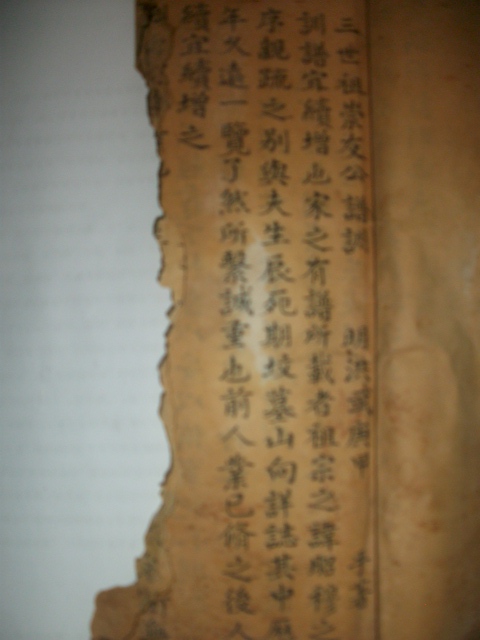 三世祖崇友公譜訓 明洪武庚申 手書
訓譜宜續增也家之有譜所載者祖宗之諱昭穆之
序親疏之别與夫生辰死期坟墓山向詳誌其中厯
年久遠一覽了然所繫誠重也前人業已脩之後人
續宜續增之